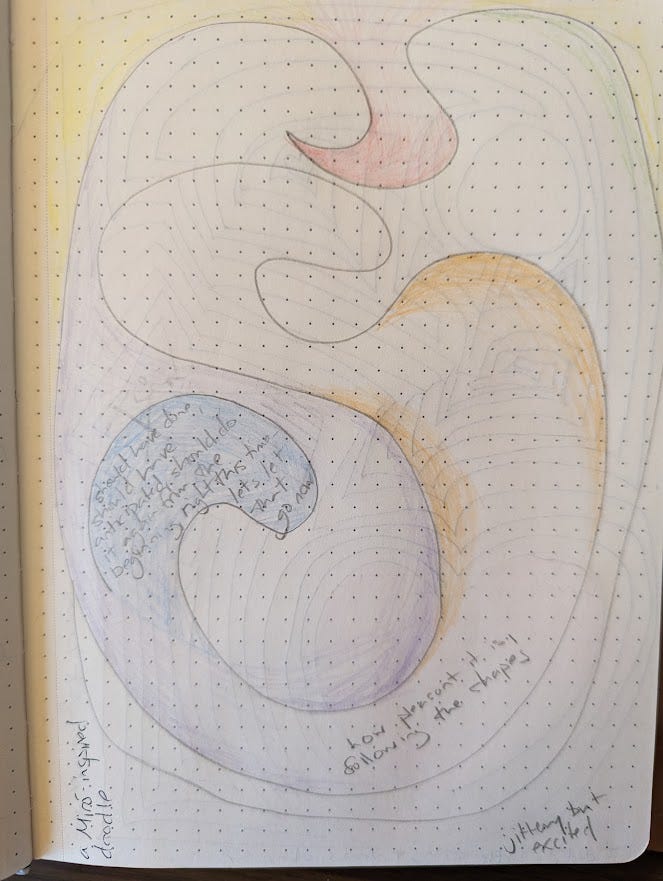 should have done,
should have
anticipated, should do
it again from the
beginning right this time
let's let
that
go now
how pleasant it is
following the shapes
a Miró-inspired
doodle
jittery but
excited